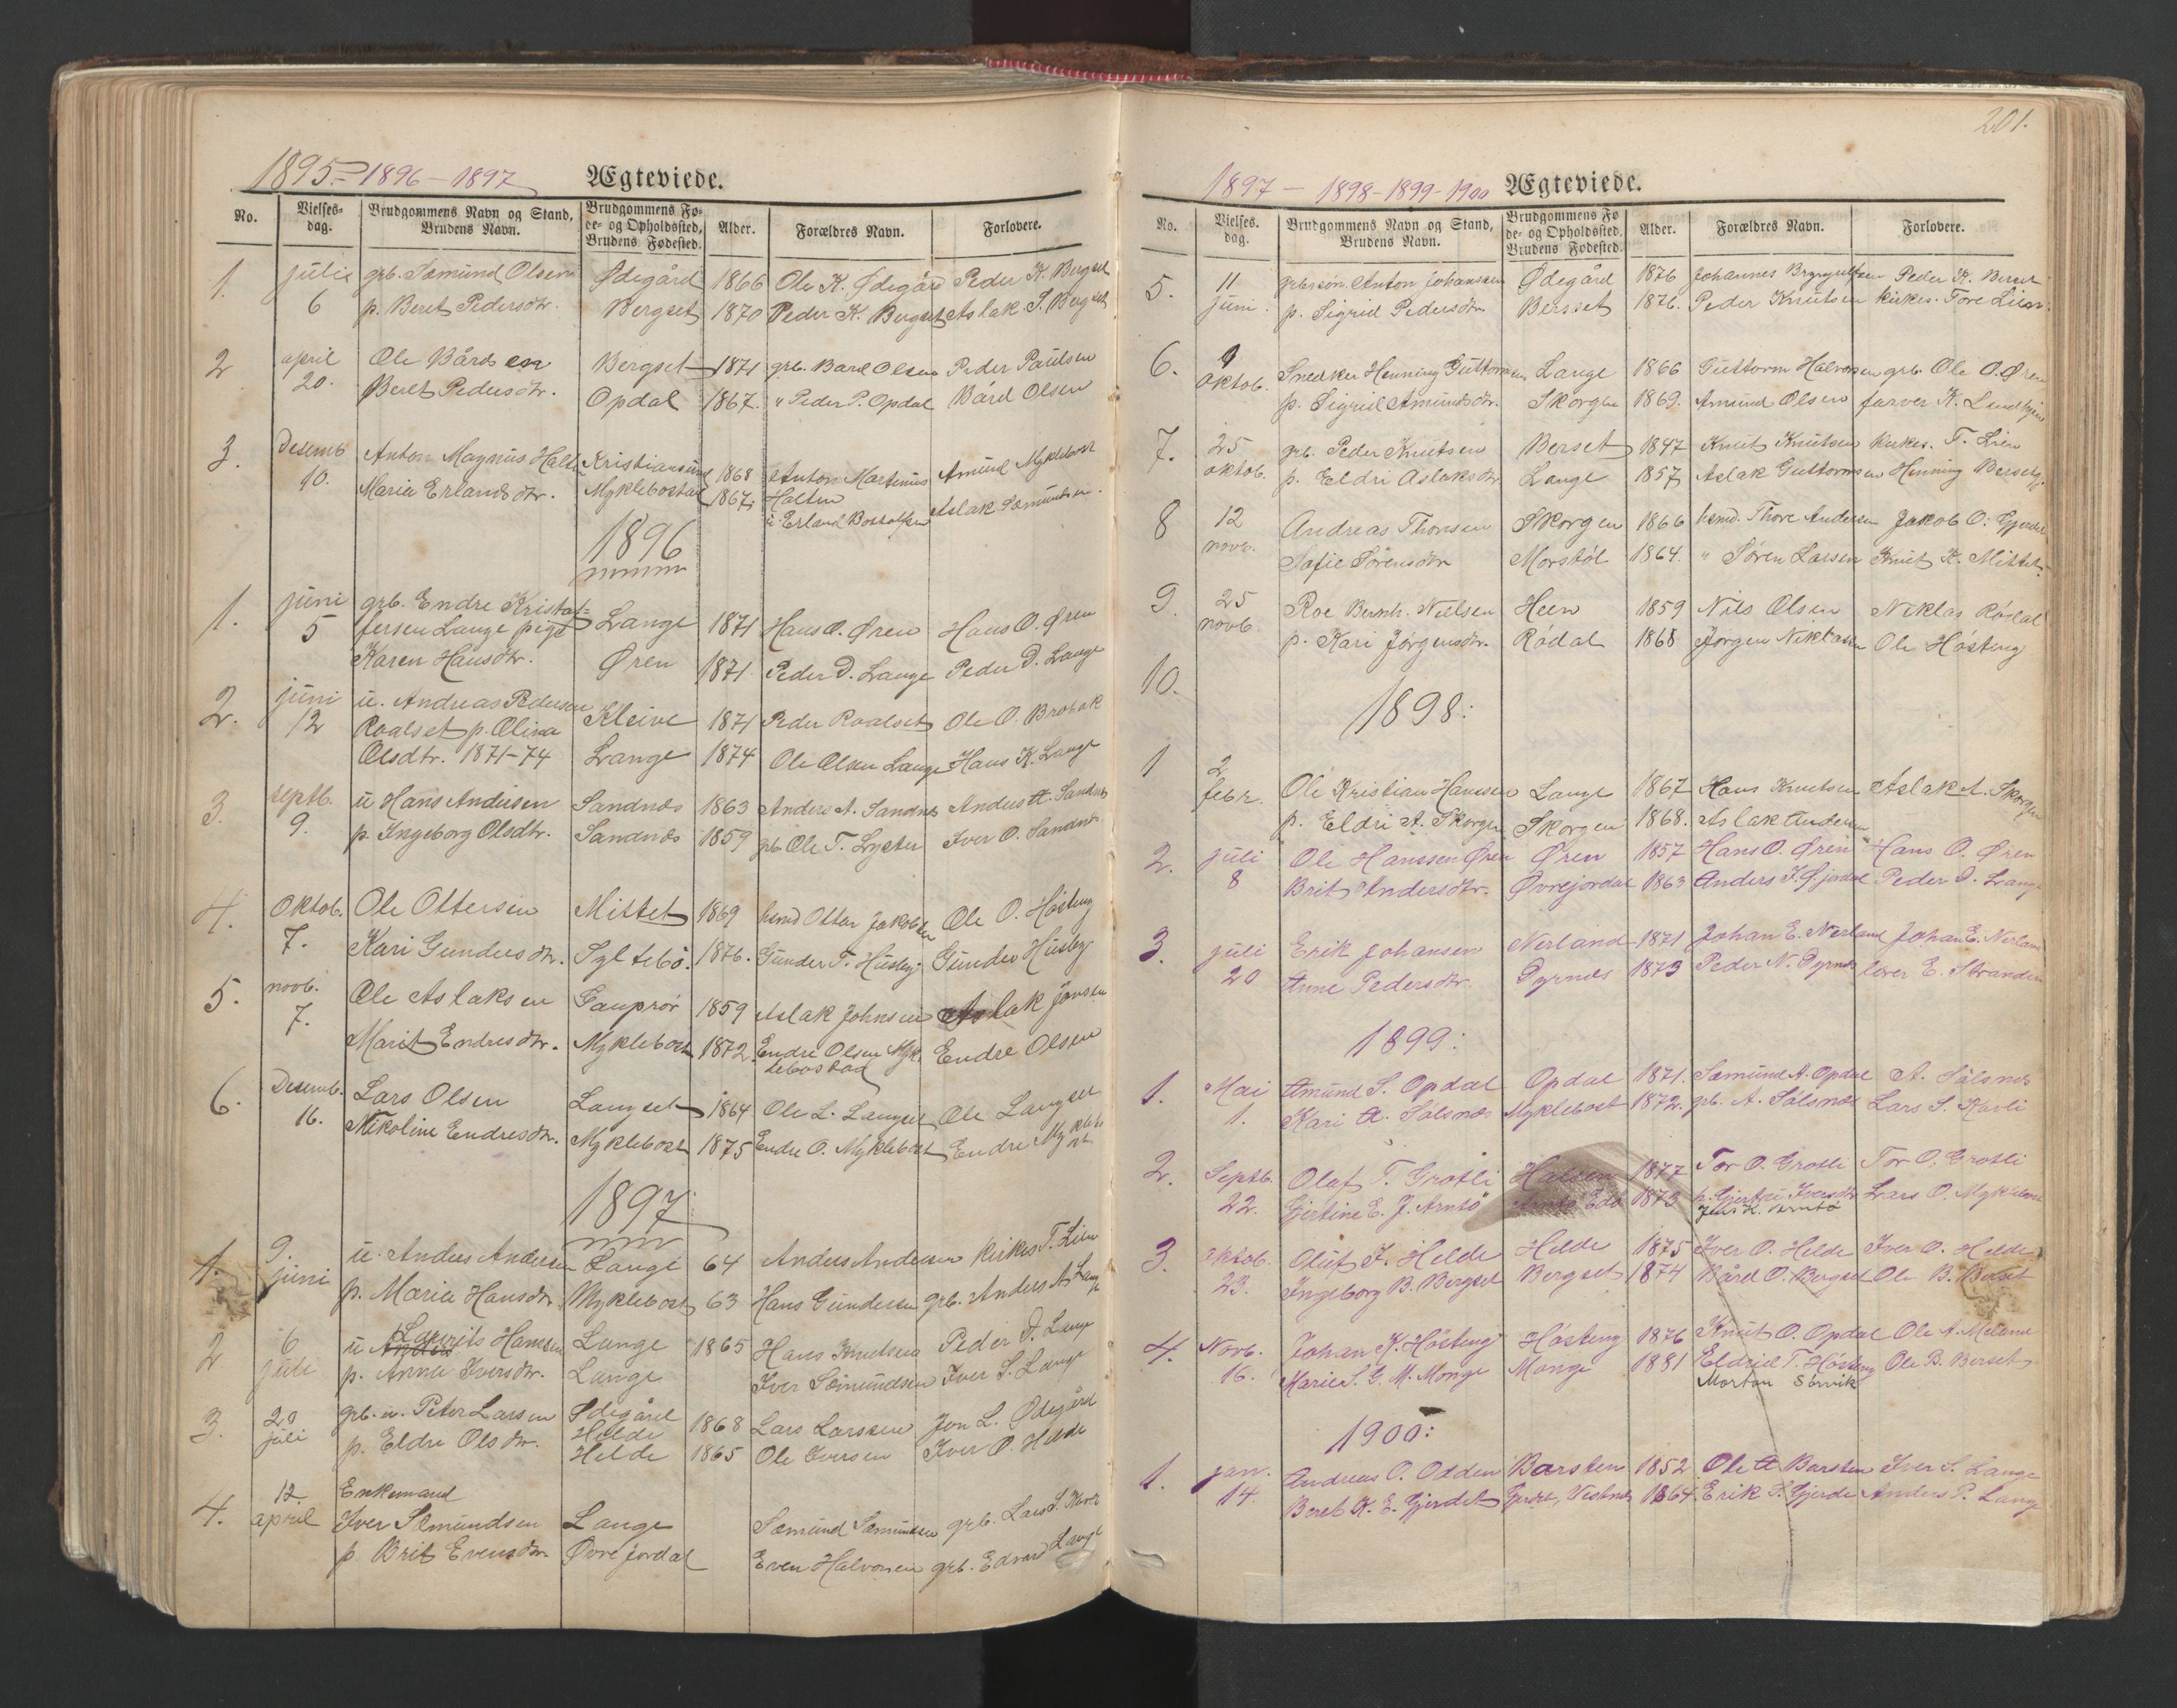 1895 = 1896 - 1897 Ægteviede.
No. Vielses-dag. Brudgommens Navn og Stand, Brudens Navn. Brudgommens Fø-de- og Opholdssted, Brudens Fødested. Alder. Forældres Navn. Forlovere.
1. julii grb. Sæmund Olsen Ødegård 1866 Ole K. Ødegård Peder K. Bergset
6 p. Beret Pedersdtr. Bergset 1870 Peder K. Bergset Aslak S. Bergset
2 april Ole Bårdsen Bergset 1871 grb. Bard Olsen Peder Paulsen
20. Beret Pedersdtr. Opdal 1867. " Peder P. Opdal Bård Olsen
3. Desemb Anton Magnus Halt Kristiansund 1868 Anton Martinus Amund Myklebost
10. Maria Erlandsdtr. Myklebostad 1867 Halten Aslak Sæmundsen.
u. Erland
1896
1. juni grb. Endre Kristof=
5 fersen Lange pige Lange 1871 Hans O. Øren Hans O. Øren
Karen Hansdtr. Øren 1871 Peder D. Lange Peder D. Lange
2. juni u. Andreas Pedersen
12 Roalset p. Olina Kleive 1871 Peder Roalset Ole O. Brobak
Olsdtr. 1871-74 Lange 1874 Ole Olsen Lange Hans K. Lange
3. septb. u Hans Andersen Sandnes 1863 Anders A. Sandnes Anders A. Sandnes
9. p. Ingeborg Olsdtr. Sandnes 1859 grb Ole T. Lyster Iver O. Sandnes
4. Oktob. Ole Ottersen Mittet 1869 hsmd Otter Jakobsen Ole O. Høsteng
7. Kari Gundersdtr. Syltebø. 1876. Gunder T. Husby. Gunder Husby
5. novb. Ole Aslaksen Gauprør 1859 Aslak Johnsen Aslak Jonsen
7. Marit Endresdtr. Myklebost 1872. Endre Olsen Myk. Endre Olsen
lebostad
6. Desemb. Lars Olsen Langset 1864 Ole L. Langset Ole Langset
16. Nikoline Endresdtr. Myklebost 1875 Endre O. Myklebost Endre Myklebost
1897
1. 9. u. Anders Andersen Lange 64 Anders Andersen kirkes T. Lien
juni p. Maria Hansdtr. Myklebost 63 Hans Gundersen grb. Anders A Lange
2 6 u Laurits Hansen Lange 1865 Hans Knutsen Peder D. Lange
juli p. Anna Iversdtr. Lange Iver Sæmundsen Iver S. Lange
3. 20 grb. u. Peter Larsen Ødegård 1868 Lars Larssen Jon L. Ødegård
juli Helde
p. Eldre Olsdtr. Helde 1865 Ole Iversen Iver O. Helde
12. Enkemand
4. april Iver Sæmundsen Lange Sæmund Sæmundsen grb. Lars S.
p. Brit Evensdtr. Øvre jordal Even Halvorsen grb. Edvard Lange
201.
1897 - 1898 - 1899 - 1900 Ægteviede.
No. Vielses.dag. Brudgommens Navn og Stand, Brudens Navn. Brudgommens Fø de- og Opholdssted, Brudens Fødested. Alder. Forældres Navn. Forlovere.
5. 11 grbrsøn. Anton Johansen Ødegård 1876 Johannes Peder K. Berset
juni. p. Sigrid Pedersdtr. Bersset 1876. Peder Knutsen kirkes. Tore Lien.
6. 9 Snedker Henning Guttormsen Lange 1866 Guttorm Halvorsen grb. Ole O. Øren
oktob. p. Sigrid Amundsdtr. Skorgen 1869. Amund Olsen farver K.
7. 25 grb. Peder Knutsen Berset 1847 Knut Knutsen kirkes. T. Lien
oktob. p. Eldri Aslaksdtr Lange 1857 Aslak Guttormsen Henning Berset
8 12 Andreas Thorsen Skorgen 1866 hsmd. Thore Andersen Jakob O. Gjerdet
novb. Sofie Sörensdtr Morstöl 1864. " Sören Larsen Knut K. Mittet.
9. 25 Roe Bernh. Nielsen Heen 1859 Nils Olsen Niklas Rødal
novb. p. Kari Jørgensdtr. Rødal 1868 Jørgen Niklasen Ole Høsteng
10.
1898:
1 2 Ole Kristian Hanssen Lange 1867 Hans Knutsen Aslak A. Skorgen
febr. p. Eldri A. Skorgen Skorgen 1868. Aslak Andersen
2. juli Ole Hanssen Øren Øren 1857 Hans O. Øren Hans O. Øren
8 Brit Andersdtr. Øvrejordal 1863 Anders I. Ø.jordal Peder D. Lange
3. juli Erik Johansen Nerland 1871 Johan E. Nerland Johan E. Nerland
20 Anne Pedersdtr. Dyrnes 1873 Peder N. Dyrnes lærer E. Stranden
1899:
1. Mai Amund S. Opdal Opdal 1871. Sæmund A. Opdal A. Sølsnes
1. Kari A. Sølsnes Myklebost 1872. grb. A. Sølsnes Lars S. Kavli
2. Septb. Olaf T. Grotli 1877 Tor O. Grotli Tor O. Grotli
22. Gjertine E. J. Arntö 1873 p. Gjertru Iversdtr Lars O. Myklebost
Jens K. Arntö
3. oktob. Oluf I. Helde Helde 1875 Iver O. Helde Iver O. Helde
23. Ingeborg B. Bergset Bergset 1874 Bård O. Bergset Ole B. Berset
4. Novb. Johan K. Hösteng Hösteng 1876 Knut O. Opdal Ole A. Meland
16. Marie S. G. M. Monge Monge 1881 Eldrid T. Hösteng Ole B. Berset
Morton Sörvik
1900:
1. jan. Andreas O. Odden Barsten 1852 Ole A Barsten Iver S. Lange
14. Beret K. E. Gjerdet Gjerdet, Vestnes 1864. Erik K. Gjerde Anders P. Lange